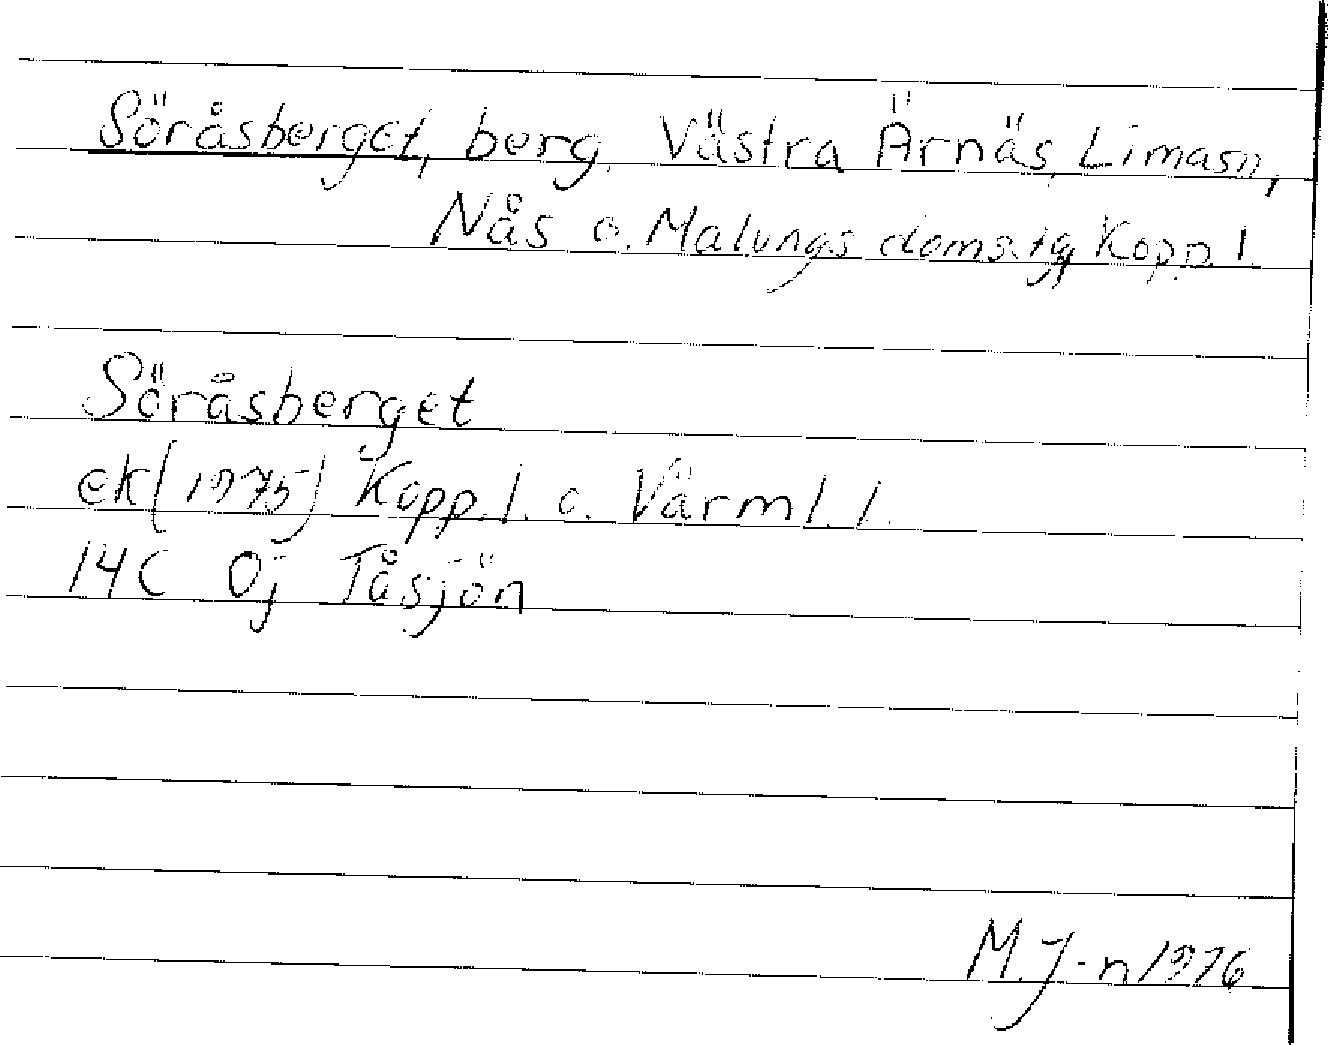 Söråsberget, berg, Västra Ärnäs, Limasn,
Nås o. Malungs domsag, Kopp. l.
Söråsberget
ek (1975) Kopp. l. o. Värml. l.
14C 0j Tåsjön
M. J-n 1976